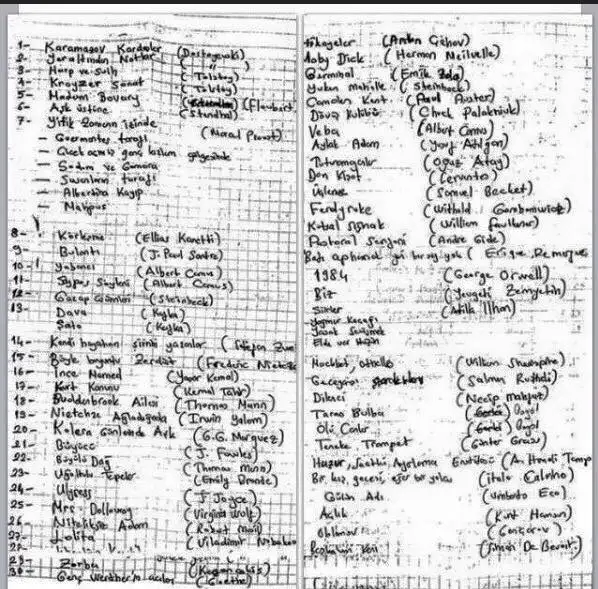 1- Karamazov Kardeşler (Dostoyevski)
2- Yeraltından Notlar ( " )
3- Harp ve Sulh (Tolstoy)
4- Kroyzer Sonat (Tolstoy)
5- Madam Bovary (Flaubert)
6- Aşk üstüne (Stendhal)
7- Yitik Zamanın izinde (Marcel Proust)
- Guermantes tarafı
- çiçek açmış genç kızların gölgesinde
- Sodom ve Gomora
- Swanların tarafı
- Albertine Kayıp
- Mahpus
8- Körleşme (Elias Kanetti)
9- Bulantı (J. Paul Sartre)
10- Yabancı (Albert Camus)
11- Sisyphos Söyleni (Albert Camus)
12- Gazap Üzümleri (Steinbeck)
13- Dava (Kafka)
Şato (Kafka)
14- Kendi hayatının şiirini yazanlar (Stefan Zwe
15- Böyle buyurdu Zerdüşt (Frederic Nietzs
16- İnce Memed (Yaşar Kemal)
17- Kurt Kanunu (Kemal Tahir)
18- Buddenbrook Ailesi (Thomas Mann)
19- Nietzche Ağladığında (Irwin Yalom)
20- Kolera Günlerinde Aşk (G.G. Marquez)
21- Büyücü (J. Fowles)
22- Büyülü Dağ (Thomas Mann)
23- Uğultulu Tepeler (Emily Bronte)
24- Ulysses (J. Joyce)
25- Mrs Dolloway (Virginia Wolf)
26- Niteliksiz Adam (Robert Musil)
27- Lolita (Viladimir Nabokov
28-
29- Zorba (Kazancakis)
30- Genç Werther'in acıları (Goethe)
Hikayeler (Anton Çehov)
Moby Dick (Herman Melville)
Germinal (Emile Zola)
Yukarı Mahalle (Steinbeck)
Camdan Kent (Paul Auster)
Dövüş Kulübü (Chuck Palahniuk)
Veba (Albert Camus)
Aylak Adam (Yusuf Atılgan)
Tutunamayanlar (Oğuz Atay)
Don Kişot (Cervantes)
Üçleme (Samuel Becket)
Ferdydurke (Withold Gombrowicz)
Kutsal Sığınak (William Faulkner)
Pastoral Senfoni (Andre Gide)
Batı cephesinde yeni bir şey yok (Erique Remarque
1984 (George Orwell)
Biz (Yevgeni Zemyatin)
Şiirler (Atilla İlhan)
Yağmur Kaçağı
Yasak Sevişmek
Elde var Hüzün
Mackbet, othello (William Shakespeare)
Geceyarısı çocukları (Salman Rushdi)
Dilenci (Necip Mahfuz)
Taras Bulba (Gogol)
Ölü Canlar (Gogol)
Teneke Trampet (Günter Grass)
Huzur, Saatleri Ayarlama Enstitüsü (A. Hamdi Tanp
Bir kış gecesi eğer bir yolcu (italo Calvino)
Gülün Adı (Umberto Eco)
Açlık (Knut Hamsun)
Oblomov (Gonçarov)
(Simon De Beauvoir)